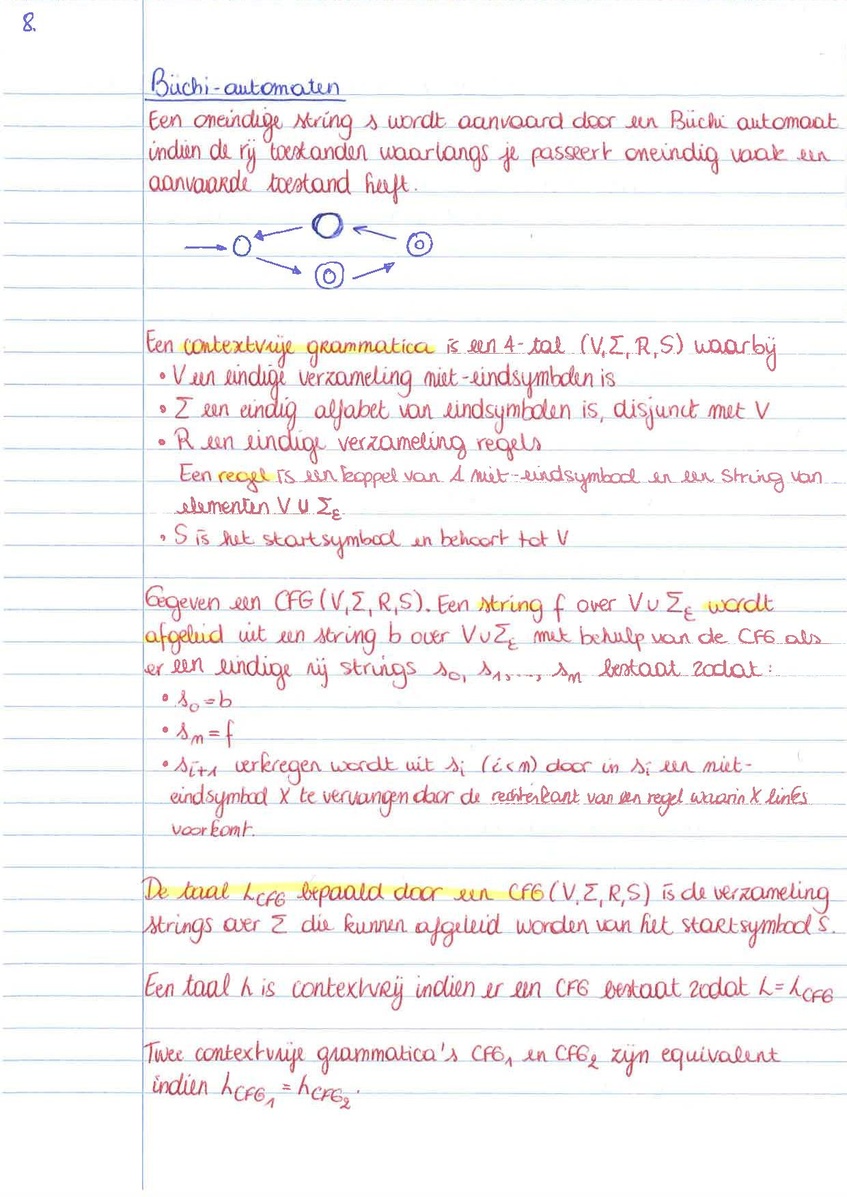 8.
Büchi-automaten
Een oneindige string s wordt aanvaard door een Büchi automaat
indien de rij toestanden waarlangs je passeert oneindig vaak een
aanvaarde toestand heeft.
Een contextvrije grammatica is een 4-tal (V,Σ,R,S) waarbij
• V een eindige verzameling niet-eindsymbolen is
• Σ een eindig alfabet van eindsymbolen is, disjunct met V
• R een eindige verzameling regels
Een regel is een koppel van 1 niet-eindsymbool en een string van
elementen V ∪ Σε
• S is het startsymbool en behoort tot V
Gegeven een CFG (V,Σ,R,S). Een string f over V∪Σε wordt
afgeleid uit een string b over V∪Σε met behulp van de CFG als
er een eindige rij strings s₀, s₁,..., sₘ bestaat zodat:
• s₀=b
• sₘ=f
• sᵢ₊₁ verkregen wordt uit sᵢ (i<m) door in sᵢ een niet-
eindsymbool X te vervangen door de rechterkant van een regel waarin X links
voorkomt.
De taal L_CFG bepaald door een CFG (V,Σ,R,S) is de verzameling
strings over Σ die kunnen afgeleid worden van het startsymbool S.
Een taal L is contextvrij indien er een CFG bestaat zodat L = L_CFG
Twee contextvrije grammatica's CFG₁ en CFG₂ zijn equivalent
indien L_CFG₁ = L_CFG₂.